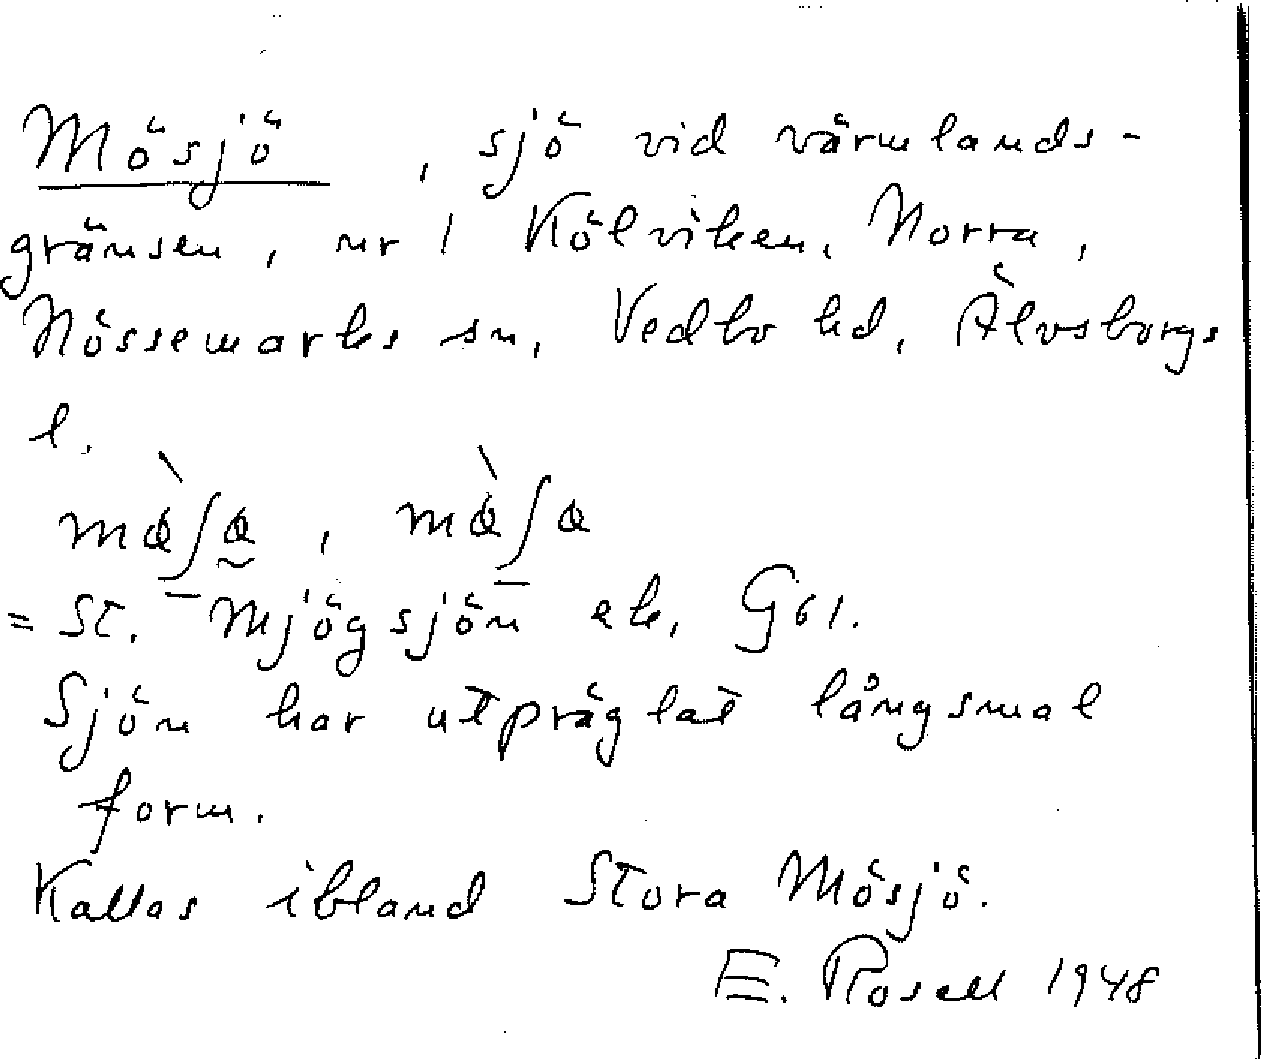 Mösjö, sjö vid värmlands-
gränsen, nr 1 Kölviken, Norra,
Nössemarks sn, Vedbo hd, Älvsborgs
l.
= St. Mjögsjön ek, G61.
Sjön har utpräglat långsmal
form.
Kallas ibland Stora Mösjö.
E. Rosell 1948